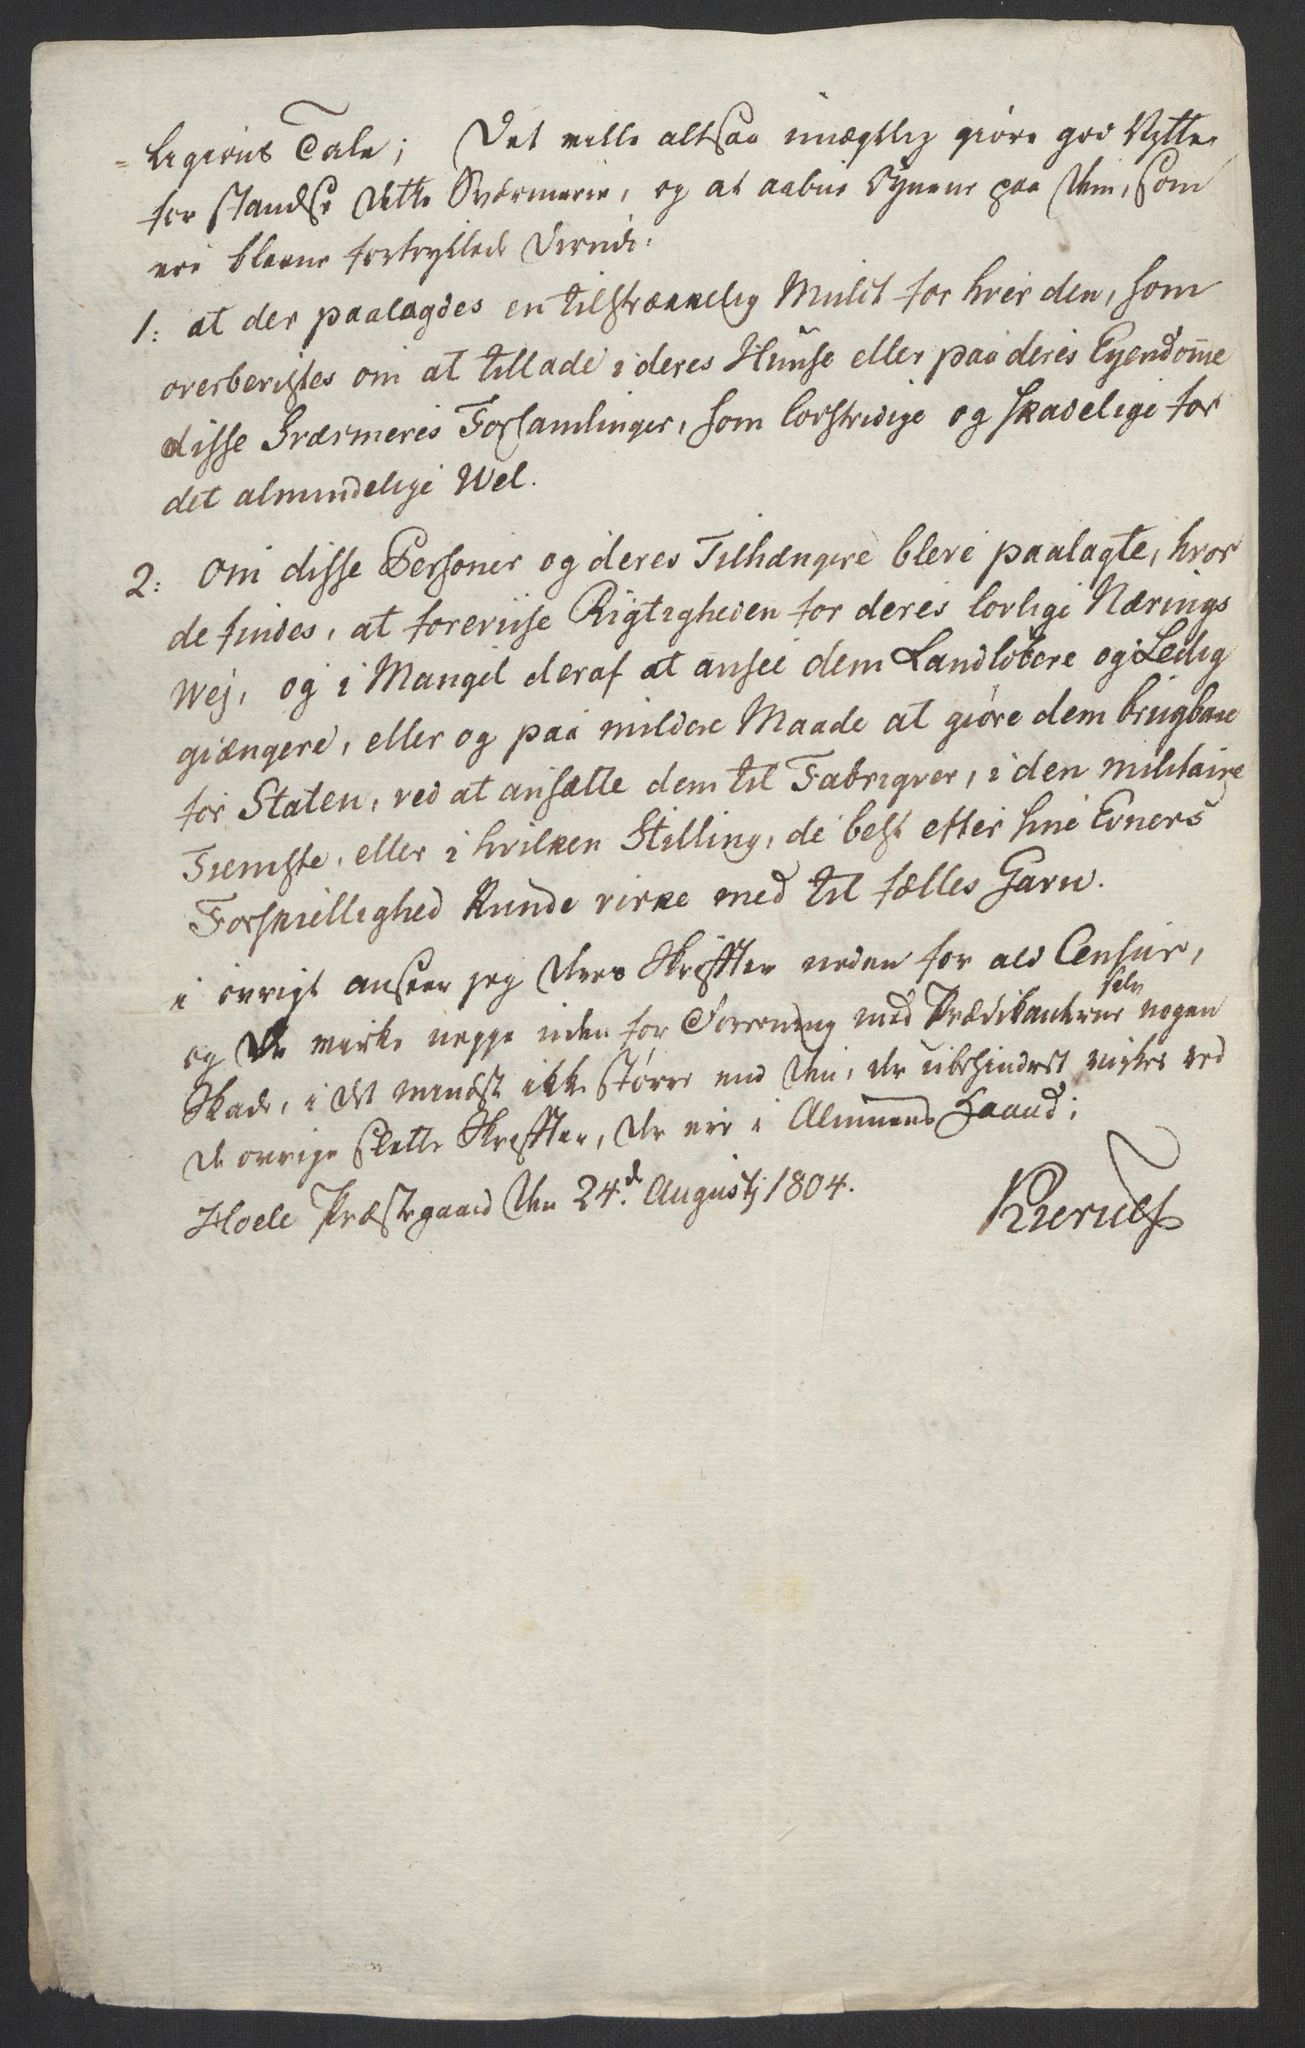 = ligieus Tale; Det ville altsaa unægtlig giøre god Nytte,
for standse dette Sværmerie, og at aabne Øynene paa dem, som
ere blevne fortryllede derved:
1: at der paalagdes en tilstrækkelig Mulct for hver den, som
overbevistes om at tillade i deres Huuse eller paa deres Eyendom̄e
disse Sværmeres Forsamlinger, som lovstridige og skadelige for
det almindelige Wel.
2: Om disse Personer og deres Tilhængere bleve paalagte, hvor
de findes, at foreviise Rigtigheden for deres lovlige Nærings
Wej, og i Mangel deraf at ansee dem Landløbere og Ledig
giængere, eller og paa mildere Maade at giøre dem brugbare
for Staten, ved at ansætte dem til Fabriqver, i den militaire
Tieneste, eller i hvilken Stilling, de best efter sine Evners
Forskiellighed kunde virke med til fælles Gavn.
i øvrigt anseer jeg deres Skrifter neden for ald Censur,
og de virke neppe uden for Forening med Prædikanterne selv nogen
Skade, i det mindste ikke større end den, der uhehindret virkes ved
de øvrige slette Skrifter, der ere i Almuens Haand;
Hoele Præstegaard den 24.d Augustj 1804.